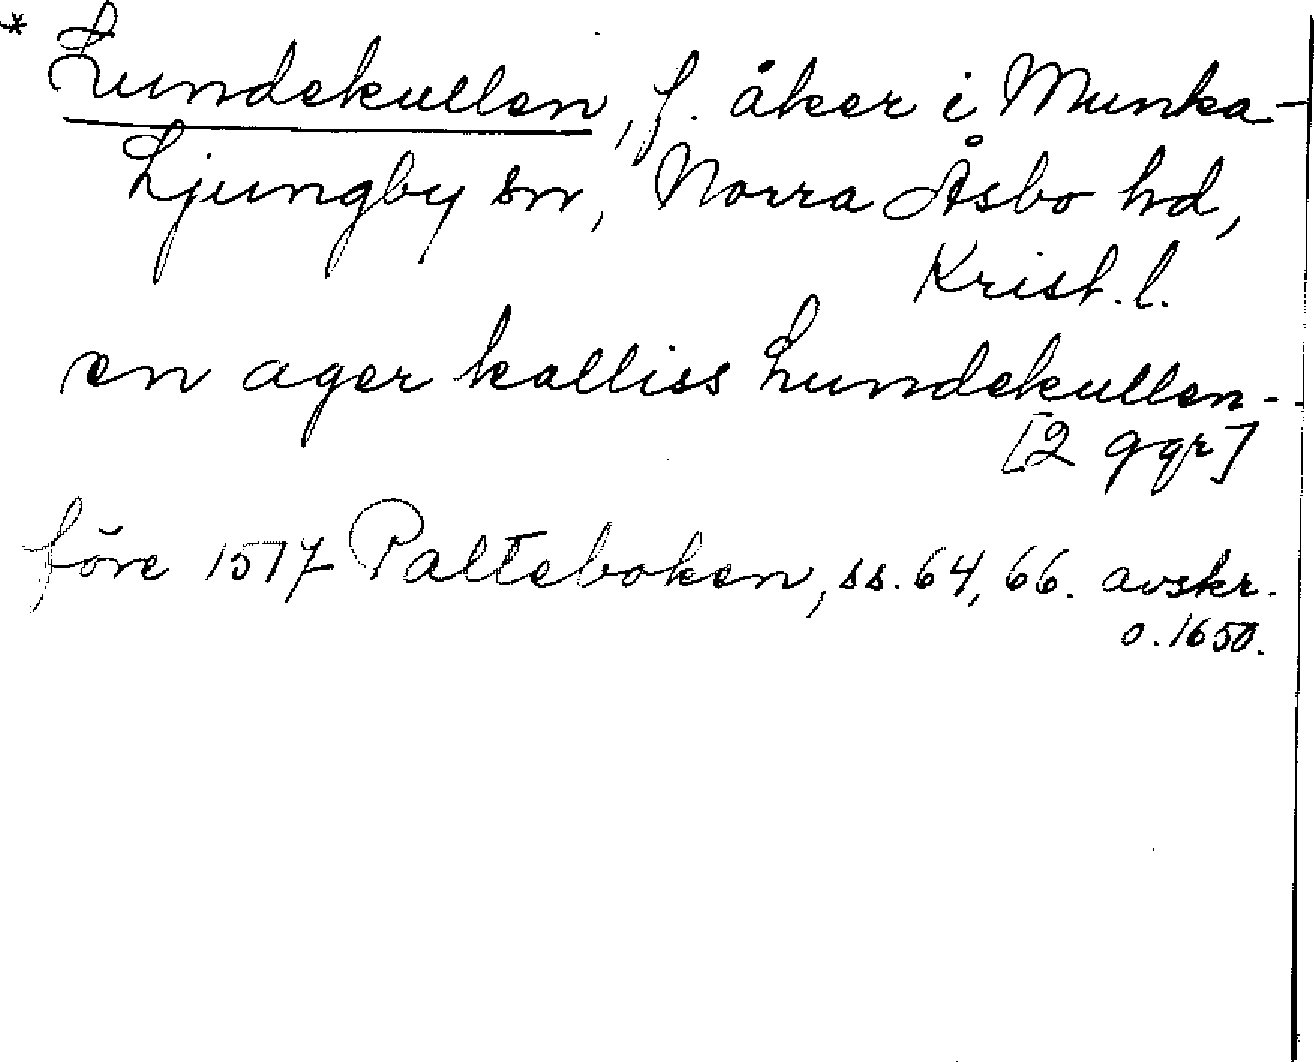 * Lundekullen, f. åker i Munka-
Ljungby sn, Norra Åsbo hd,
Krist. l.
en ager kalliss Lundekullen -
[2 ggr]
före 1517 Palteboken, ss. 64, 66. avskr.
o. 1650.